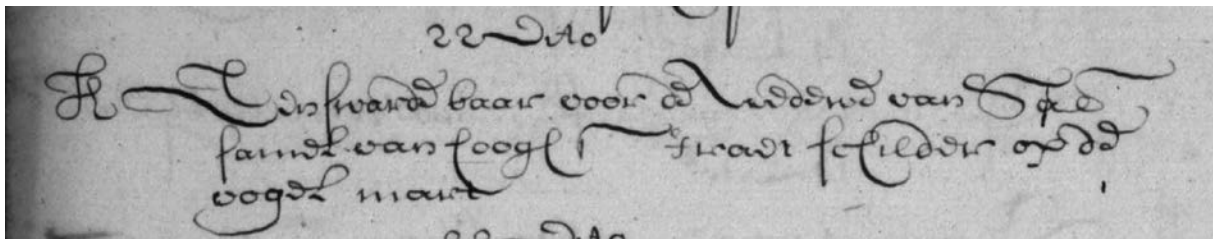 22 Dito
Een swarte baar voor de weddewe van
samel van hoogstraet schilder op de
vogel mart